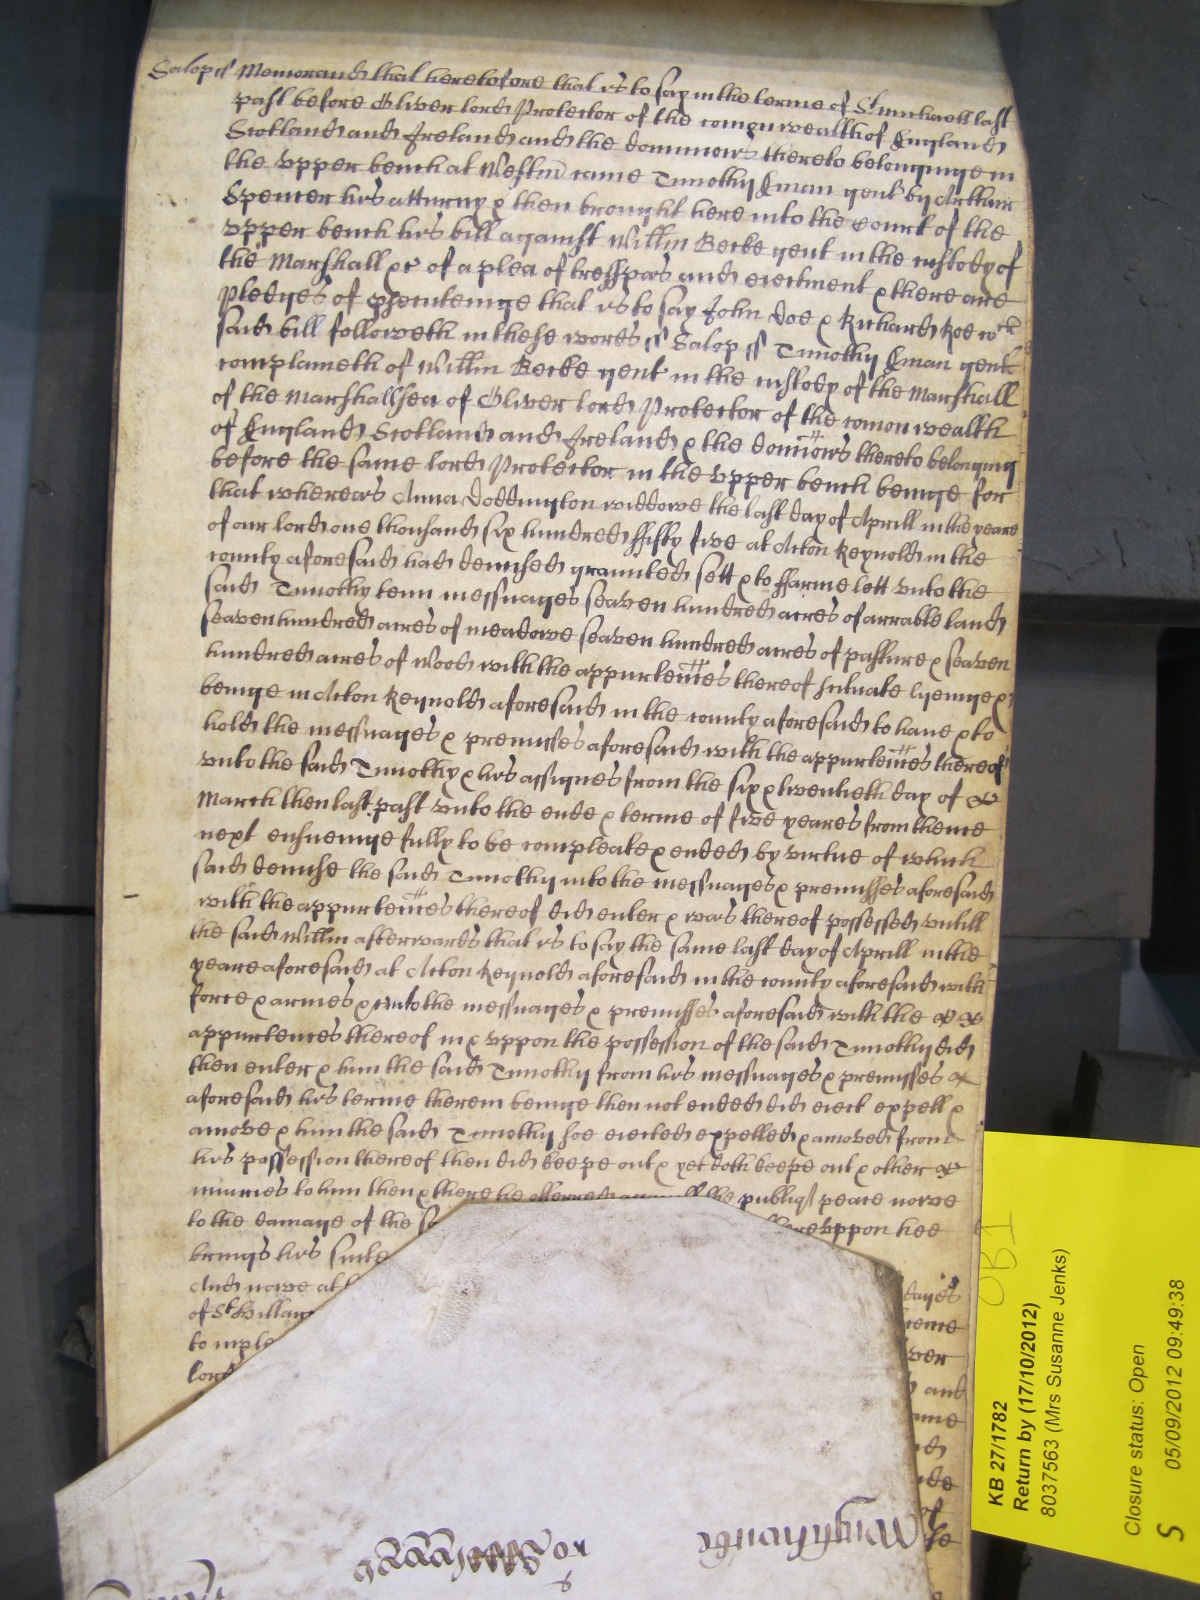 Salop ss Memorand that heretofore that is to say in the terme of St michaell last
past before Oliver lord Protector of the comon wealth of England
Scotland and Ireland and the dominions thereto belonginge in
the vpper bench at Westm came Timothy Eman gent by Arthur
Spencer his atturny & then brought here into the court of the
vpper bench his bill against Willm Becke gent in the custody of
the Marshall &c of a plea of tresspas and eiectment & there are
pledges of that is to say John Doe & Richard Roe wch
said bill followeth in these words ss Salop ss Timothy Eman gent
complaineth of Willm Becke gent in the custody of the Marshall
of the Marshallsea of Oliver lord Protector of the comon wealth
of England Scotland and Ireland & the dominions thereto belonging
before the same lord Protector in the vpper bench beinge for
that whereas Anna Doddington widdowe the last day of Aprill in the yeare
of our lord one thousand six hundred ffifty five at Acton Reynold in the
county aforesaid had demised graunted sett & to ffarme lett vnto the
said Timothy tenn messuages seaven hundred acres of arrable land
seaven hundred acres of meadowe seaven hundred acres of pasture & seaven
hundred acres of wood with the appurtences thereof scituate lyenge &
beinge in Acton Reynold aforesaid in the county aforesaid to haue & to
hold the messuages & premisses aforesaid with the appurtences thereof
vnto the said Timothy & his assignes from the six & twentieth day of
March then last past vnto the ende & terme of five yeares from thence
next ensueinge fully to be compleate & ended by virtue of which
said demise the said Timothy into the messuages & premisses aforesaid
with the appurtences thereof did enter & was thereof possessed vntill
the said Willm afterwards that is to say the same last day of Aprill in the
yeare aforesaid at Acton Reynold aforesaid in the county aforesaid with
force & armes & into the messuages & premisses aforesaid with the
appurtences thereof in & vppon the possession of the said Timothy did
then enter & him the said Timothy from his messuages & premisses
aforesaid his terme therein beinge then not ended did eiect expell &
amove & him the said Timothy soe eiected expelled & amoved from
his possession thereof then did keepe out & yet doth keepe out & other
iniuries to him then & there he offered against the publiq peace nowe
to the damage of the vppon hee
brings his suite
And nowe at dayes
of St Hillary
to imple
lord
and
KB 27/1782
Return by (17/10/2012)
8037563 (Mrs Susanne Jenks)
Closure status: Open
S 05/09/2012 09:49:38
OB1